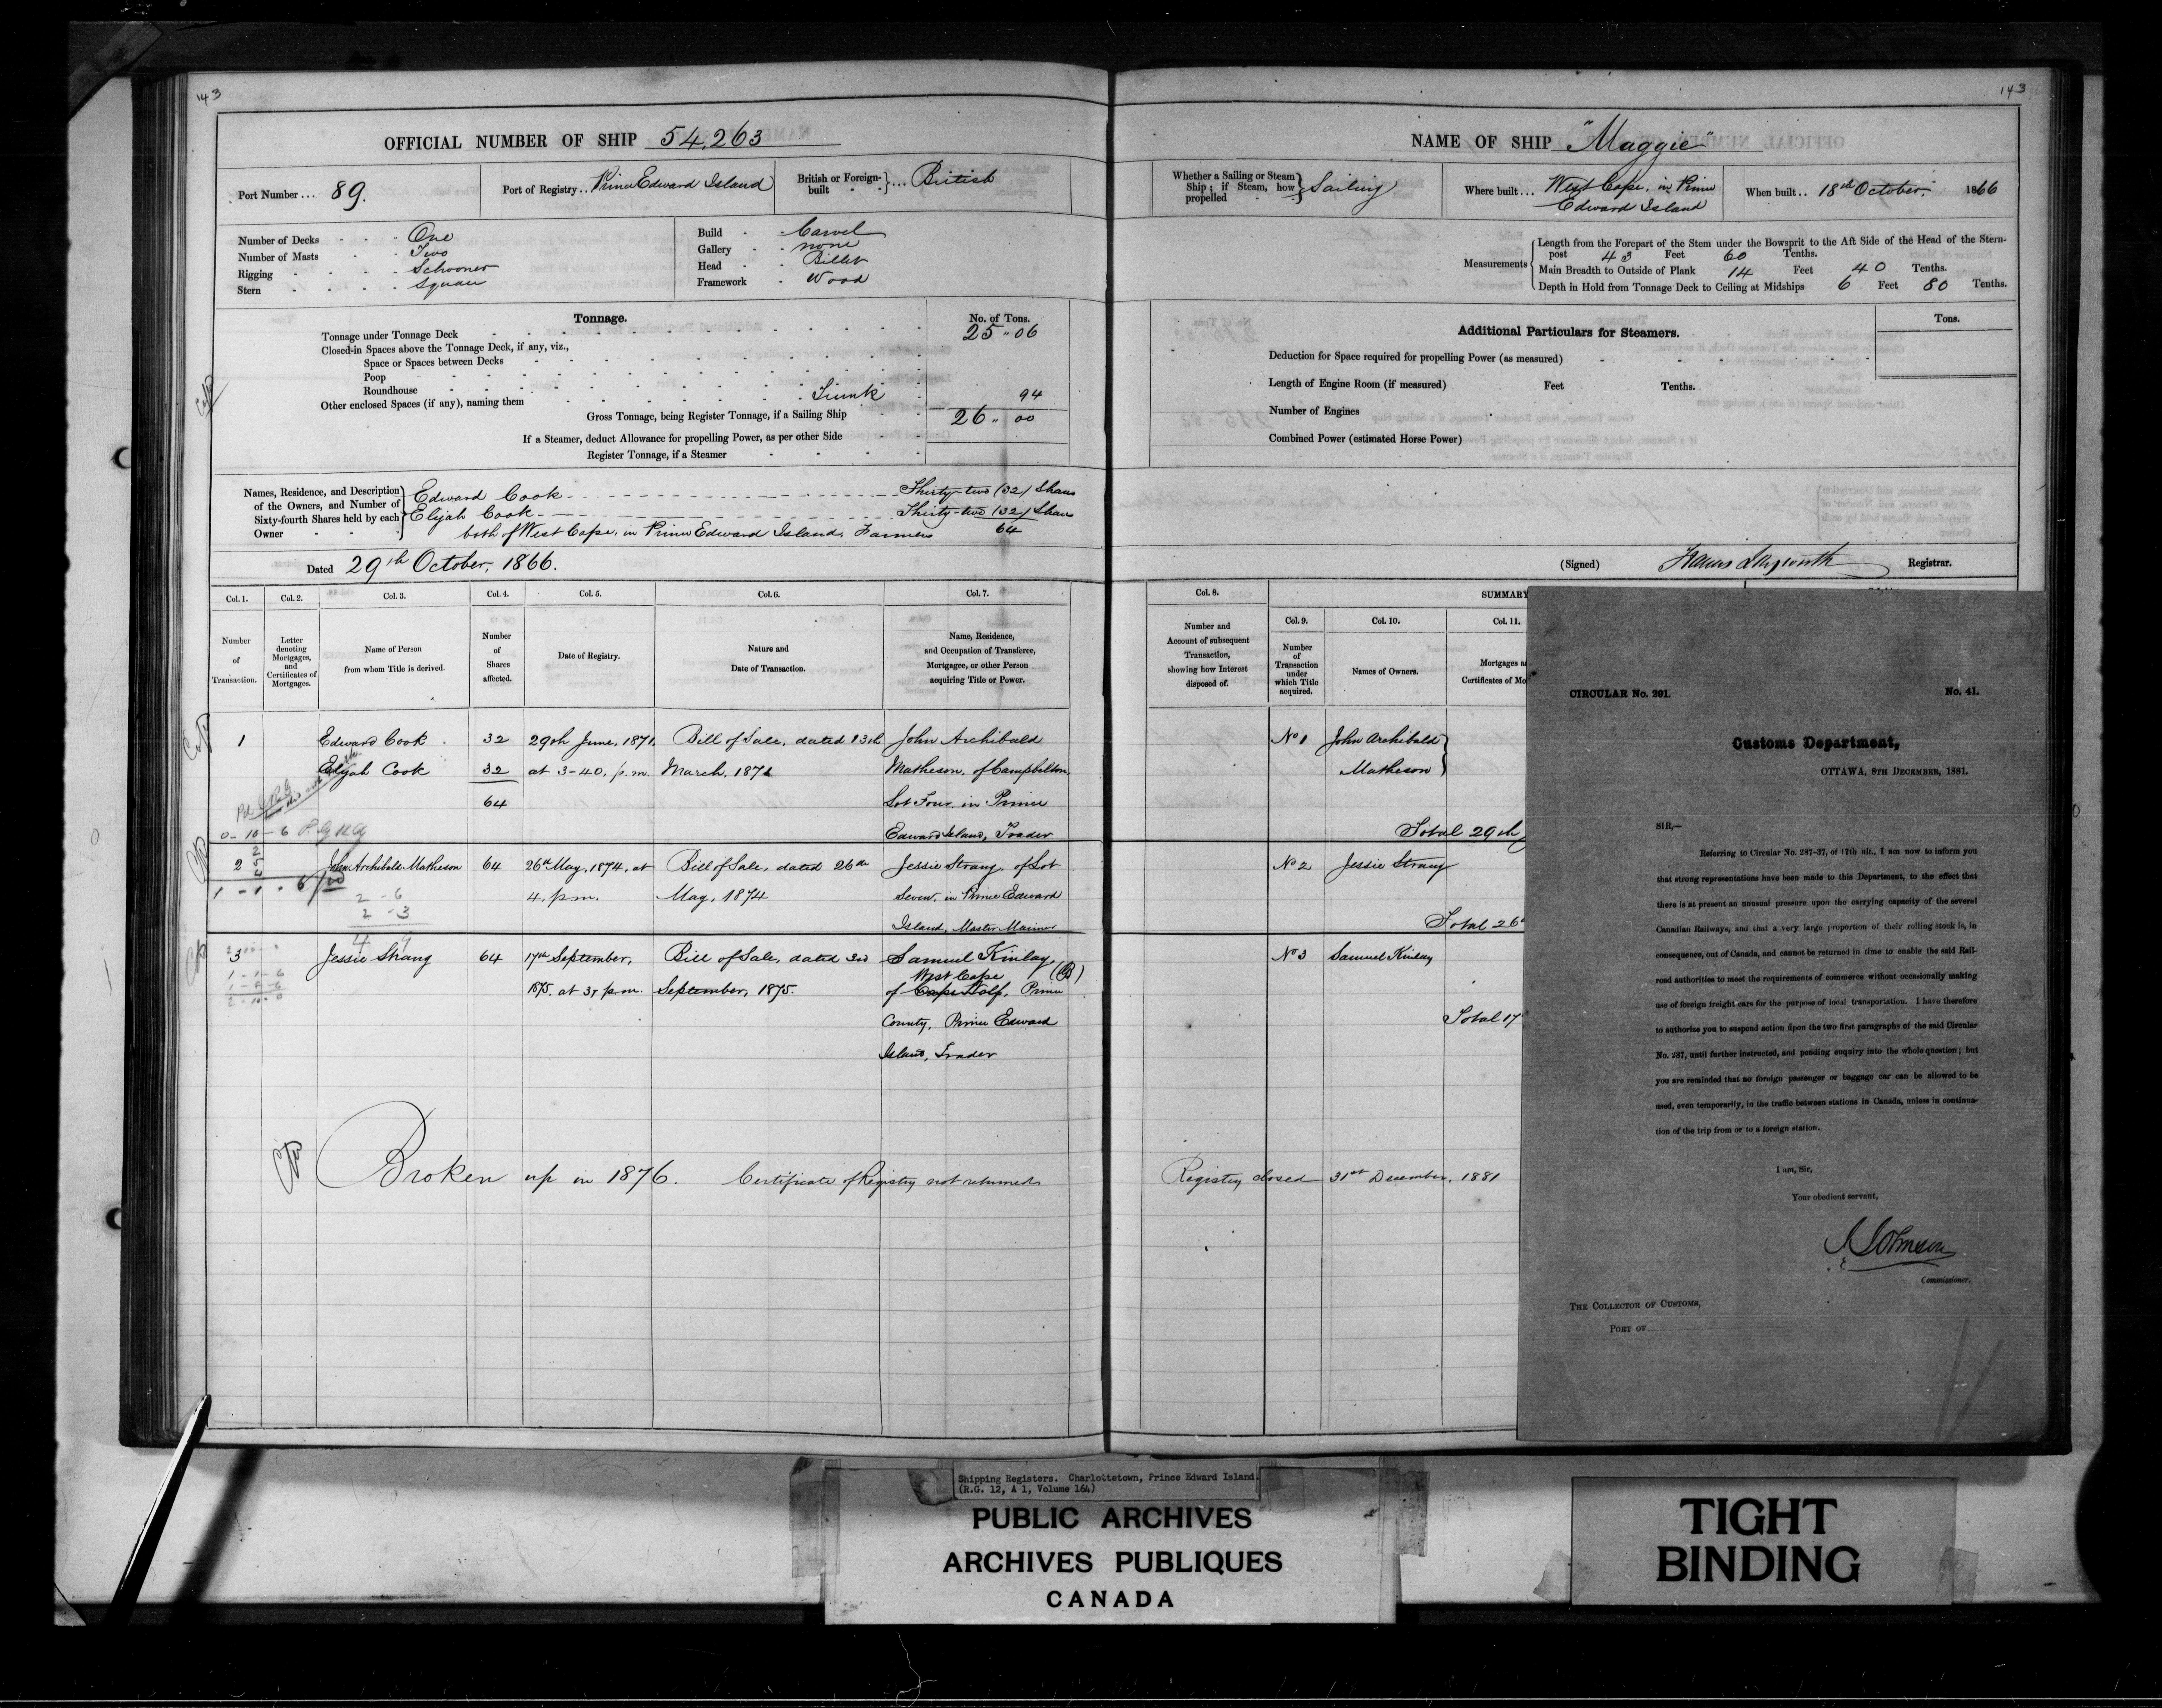 143
143
OFFICIAL NUMBER OF SHIP 54,263
Port Number ... 89.
Port of Registry .. Prince Edward Island
British or Foreign-built } ... British
Number of Decks One
Number of Masts Two
Rigging Schooner
Stern Square
Build Carvel
Gallery none
Head Billet
Framework Wood
Tonnage.
No. of Tons.
Tonnage under Tonnage Deck 25 " 06
Closed-in Spaces above the Tonnage Deck, if any, viz.,
Space or Spaces between Decks
Poop
Roundhouse
Other enclosed Spaces (if any), naming them 94
Gross Tonnage, being Register Tonnage, if a Sailing Ship 26 " 00
If a Steamer, deduct Allowance for propelling Power, as per other Side
Register Tonnage, if a Steamer
Names, Residence, and Description of the Owners, and Number of Sixty-fourth Shares held by each Owner
Edward Cook Thirty-two (32) Shares
Elijah Cook Thirty-two (32) Shares
both of West Cape, in Prince Edward Island, Farmers 64
Dated 29th October, 1866.
NAME OF SHIP "Maggie"
Whether a Sailing or Steam Ship; if Steam, how propelled } Sailing
Where built ... West Cape, in Prince Edward Island
When built .. 18th October, 1866
Measurements
Length from the Forepart of the Stem under the Bowsprit to the Aft Side of the Head of the Stern-
post 43 Feet 60 Tenths.
Main Breadth to Outside of Plank 14 Feet 40 Tenths.
Depth in Hold from Tonnage Deck to Ceiling at Midships 6 Feet 80 Tenths.
Additional Particulars for Steamers.
Tons.
Deduction for Space required for propelling Power (as measured)
Length of Engine Room (if measured) Feet Tenths.
Number of Engines
Combined Power (estimated Horse Power)
(Signed) Registrar.
Col. 1. Col. 2. Col. 3. Col. 4. Col. 5. Col. 6. Col. 7.
Number of Transaction.
Letter denoting Mortgages, and Certificates of Mortgages.
Name of Person from whom Title is derived.
Number of Shares affected.
Date of Registry.
Nature and Date of Transaction.
Name, Residence, and Occupation of Transferee, Mortgagee, or other Person acquiring Title or Power.
Col. 8. SUMMARY
Number and Account of subsequent Transaction, showing how Interest disposed of.
Col. 9. Col. 10. Col. 11.
Number of Transaction under which Title acquired.
Names of Owners.
Mortgages
Certificates of
1 Edward Cook 32 29th June, 1871, Bill of Sale, dated 13th John Archibald
Elijah Cook 32 at 3-40, p.m. March, 1871 Matheson, of Campbelton,
64 Lot Four, in Prince
0-10-6 Edward Island, Trader
2 John Archibald Matheson 64 26th May, 1874, at Bill of Sale, dated 26th Jessie Strang, of Lot
1-1-6 4, p.m. May, 1874 Seven, in Prince Edward
2-6
2-3
Island, Master Mariner
3 Jessie Strang 64 17th September, Bill of Sale, dated 3rd Samuel Kinlay,
West Cape
1875, at 3, p.m. September, 1875. of Cape Wolf, Prince
County, Prince Edward
Island, Trader
No 1 John Archibald
Matheson
Total 29th
No 2 Jessie Strang
Total 26th
No 3 Samuel Kinlay
Total 17
Broken up in 1876. Certificate of Registry not returned. Registry closed 31st December, 1881
CIRCULAR No. 291. No. 41.
Customs Department,
OTTAWA, 8TH DECEMBER, 1881.
SIR,—
Referring to Circular No. 287-37, of 17th ult., I am now to inform you
that strong representations have been made to this Department, to the effect that
there is at present an unusual pressure upon the carrying capacity of the several
Canadian Railways, and that a very large proportion of their rolling stock is, in
consequence, out of Canada, and cannot be returned in time to enable the said Rail-
road authorities to meet the requirements of commerce without occasionally making
use of foreign freight cars for the purpose of local transportation. I have therefore
to authorize you to suspend action upon the two first paragraphs of the said Circular
No. 287, until further instructed, and pending enquiry into the whole question; but
you are reminded that no foreign passenger or baggage car can be allowed to be
used, even temporarily, in the traffic between stations in Canada, unless in continua-
tion of the trip from or to a foreign station.
I am, Sir,
Your obedient servant,
J Johnson
Commissioner.
THE COLLECTOR OF CUSTOMS,
PORT OF
Shipping Registers. Charlottetown, Prince Edward Island.
(R.G. 12, A 1, Volume 164)
PUBLIC ARCHIVES
ARCHIVES PUBLIQUES
CANADA
TIGHT
BINDING